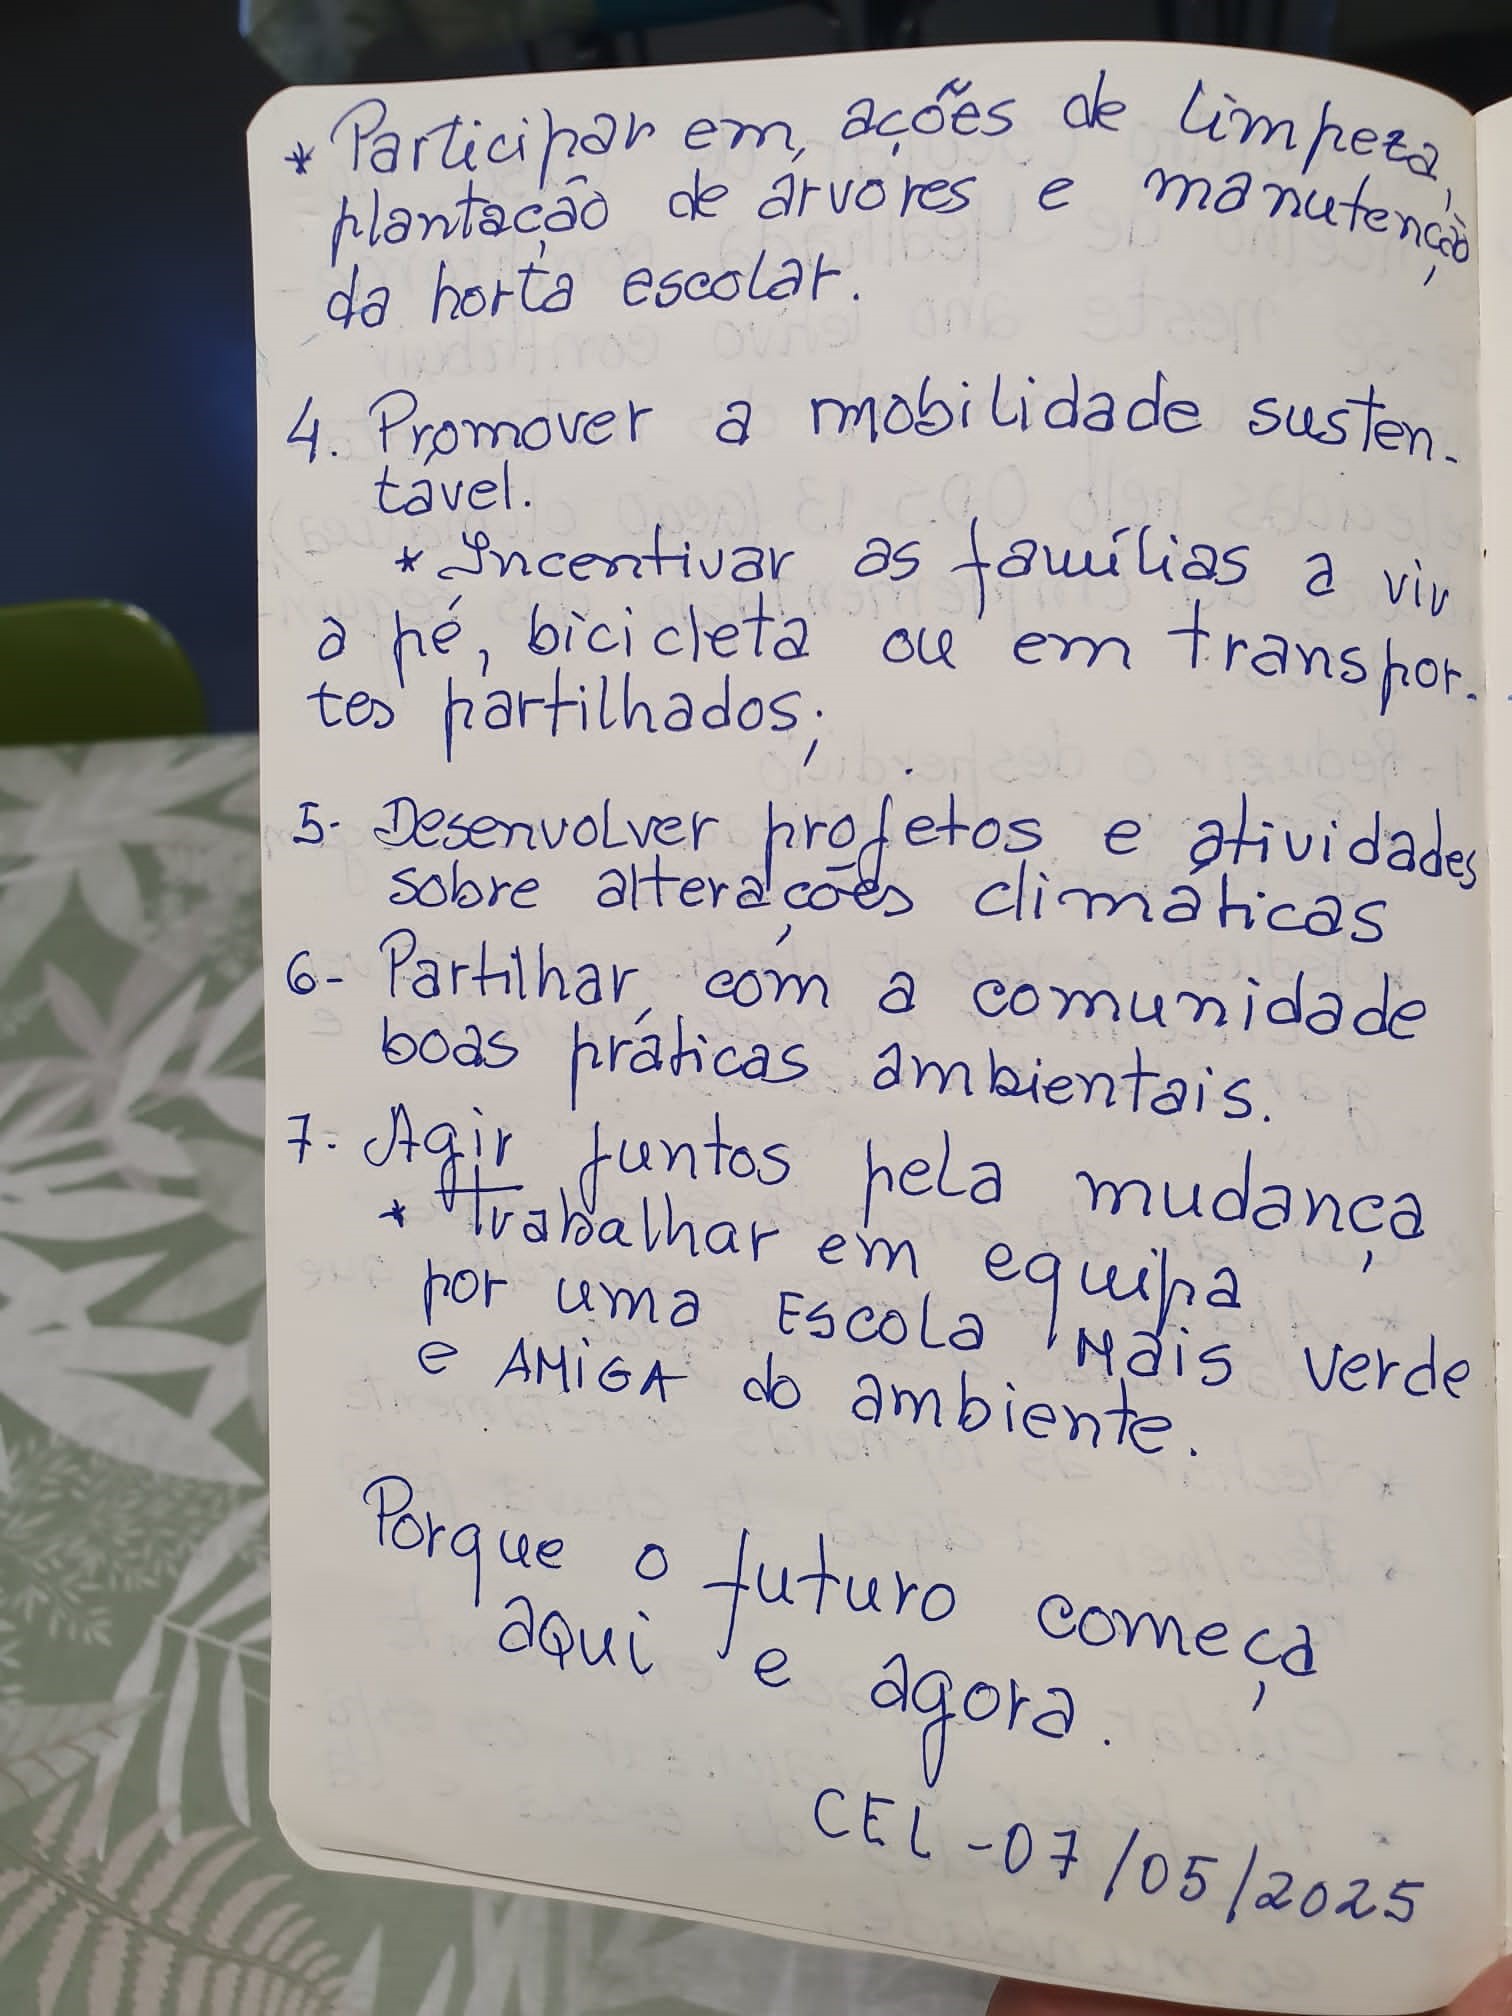 * Participar em ações de limpeza,
plantação de árvores e manutenção
da horta escolar.
4. Promover a mobilidade susten-
tável.
* Incentivar as famílias a vir
a pé, bicicleta ou em transpor-
tes partilhados;
5- Desenvolver projetos e atividades
sobre alterações climáticas
6- Partilhar com a comunidade
boas práticas ambientais.
7- Agir juntos pela mudança
* Trabalhar em equipa
por uma ESCOLA Mais verde
e AMiGA do ambiente.
Porque o futuro começa
aqui e agora.
CEL - 07/05/2025